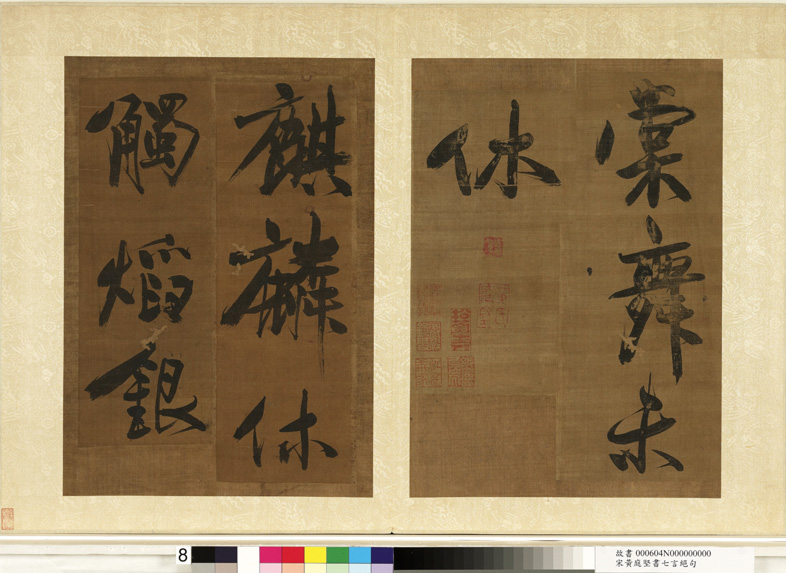 裳舞未
休
麒麟休
觸熖銀
8
故書 000604N000000000
宋黃庭堅書七言絕句